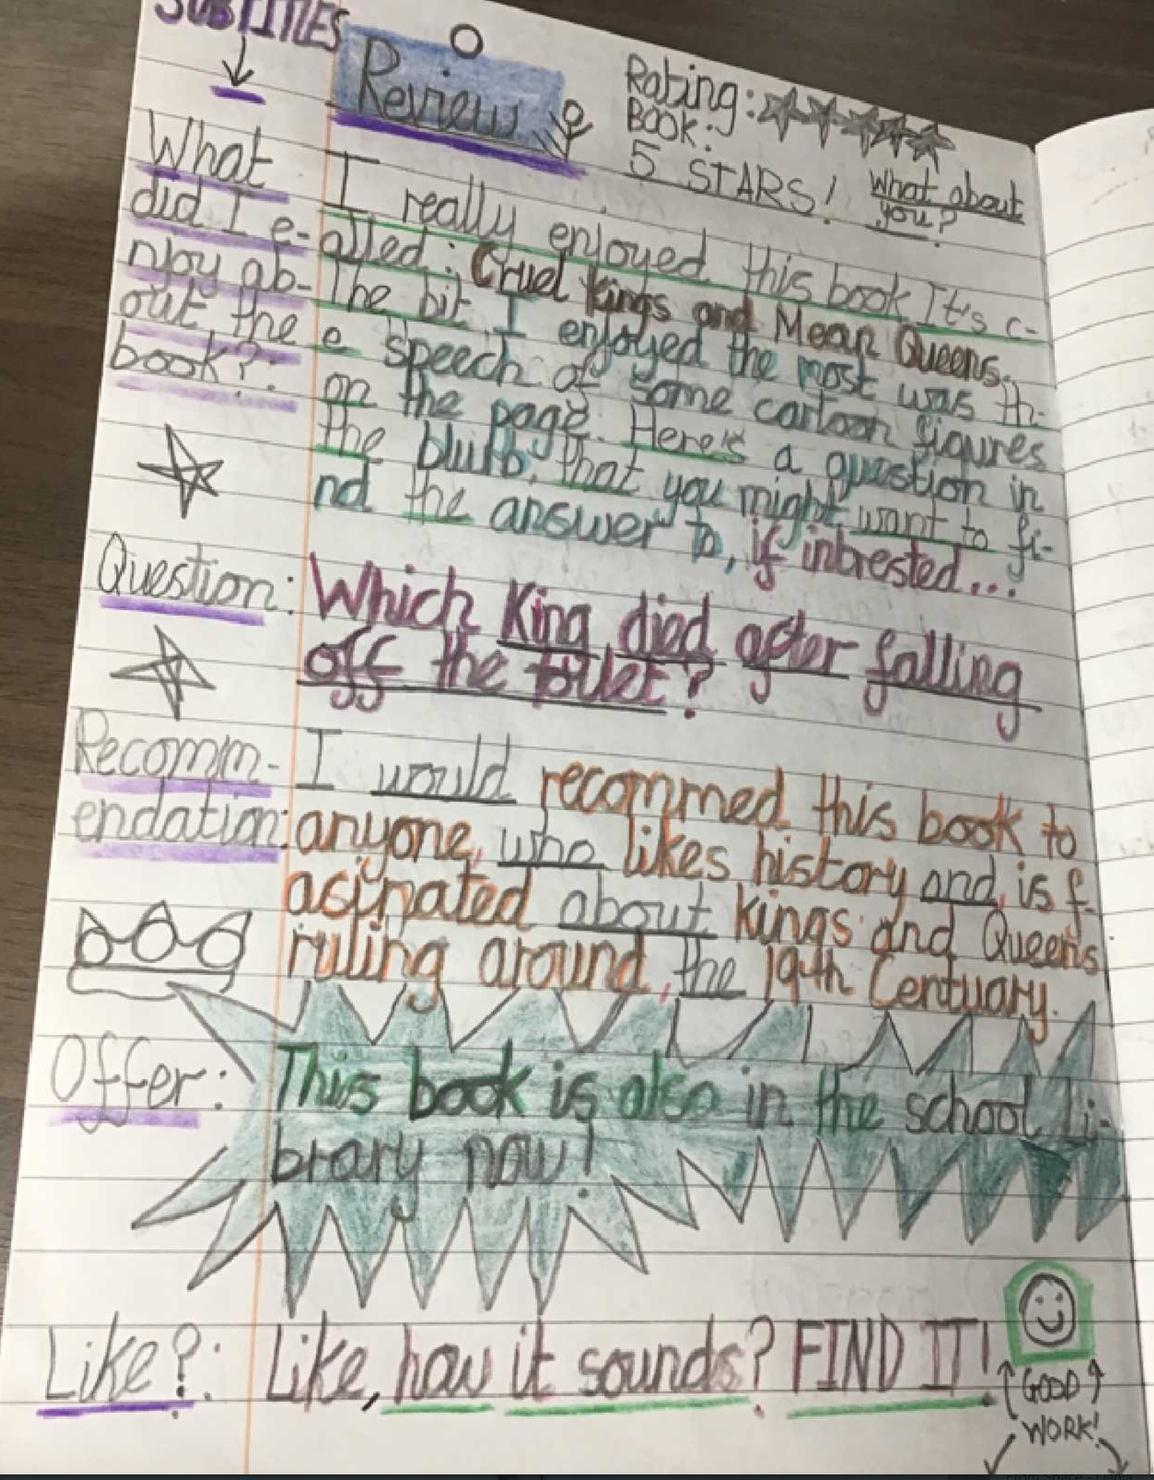 SUBTITLES
Review
Rating:
BOOK:
5 STARS!
What about
you?
What
did I e-
njoy ab-
out the
book?:
I really enjoyed this book It's c-
alled: Cruel kings and Mean Queens.
The bit I enjoyed the most was th-
e speech of some cartoon figures
on the page. Here's a question in
the blurb, that you might want to fi-
nd the answer to, if intrested...
Question:
Which King died after falling
off the toilet?
Recomm-
endation:
I would recommed this book to
anyone, who likes history and is f-
asinated about kings and Queens
ruling around, the 19th Centuary.
Offer:
This book is also in the school li-
brary now!
Like?:
Like, how it sounds? FIND IT!
GOOD
WORK!